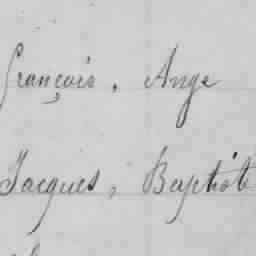 françois, Ange
Jacques, Baptist